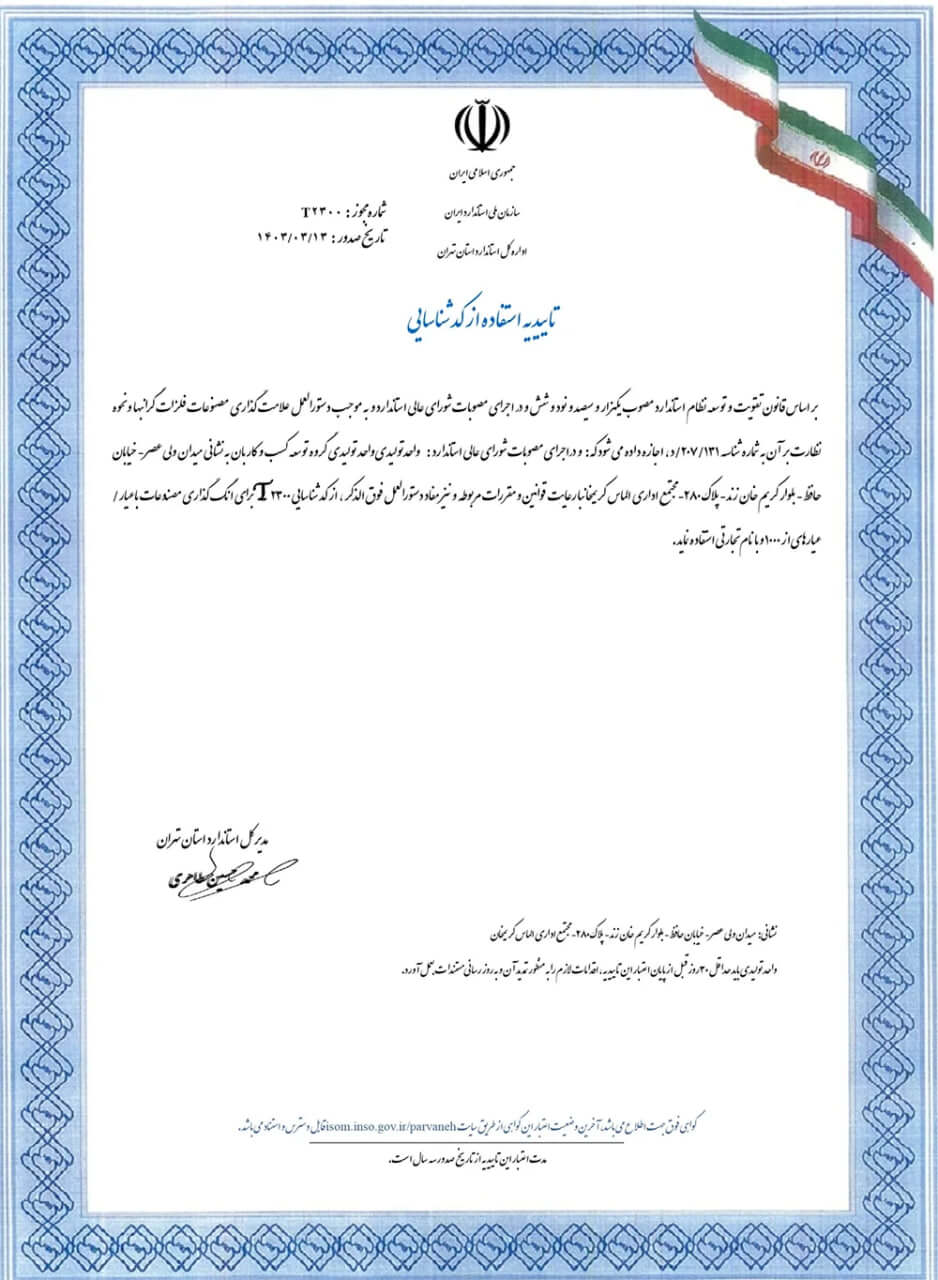 جمهوری اسلامی ایران
سازمان ملی استاندارد ایران
اداره کل استاندارد استان تهران
شماره مجوز : T۲۳۰۰
تاریخ صدور : ۱۴۰۳/۰۳/۱۳
تاییدیه استفاده از کد شناسایی
بر اساس قانون تقویت و توسعه نظام استاندارد مصوب یکهزار و سیصد و نود و شش و در اجرای مصوبات شورای عالی استاندارد و به موجب دستورالعمل علامت گذاری مصنوعات فلزات گرانبها و نحوه
نظارت بر آن به شماره شناسه ۲۰۷/۱۳۱/د ، اجازه داده می شود که : و در اجرای مصوبات شورای عالی استاندارد : واحد تولیدی واحد تولیدی گروه توسعه کسب و کار بان به نشانی میدان ولی عصر- خیابان
حافظ - بلوار کریم خان زند - پلاک ۲۸۰- مجتمع اداری الماس کریمخان با رعایت قوانین و مقررات مربوطه و نیز مفاد دستورالعمل فوق الذکر ، از کد شناسایی T۲۳۰۰ برای انگ گذاری مصنوعات با عیار /
عیارهای از ۱۰۰۰ و با نام تجارتی استفاده نماید.
مدیر کل استاندارد استان تهران
محمد حسین طاهری
نشانی: میدان ولی عصر- خیابان حافظ - بلوار کریم خان زند - پلاک ۲۸۰- مجتمع اداری الماس کریمخان
واحد تولیدی باید حداقل ۳۰ روز قبل از پایان اعتبار این تاییدیه ، اقدامات لازم را به منظور تمدید آن و به روز رسانی مستندات بعمل آورد.
گواهی فوق جهت اطلاع می باشد. آخرین وضعیت اعتبار این گواهی از طریق سایت isom.inso.gov.ir/parvaneh قابل دسترس و استناد می باشد.
مدت اعتبار این تاییدیه از تاریخ صدور سه سال است.